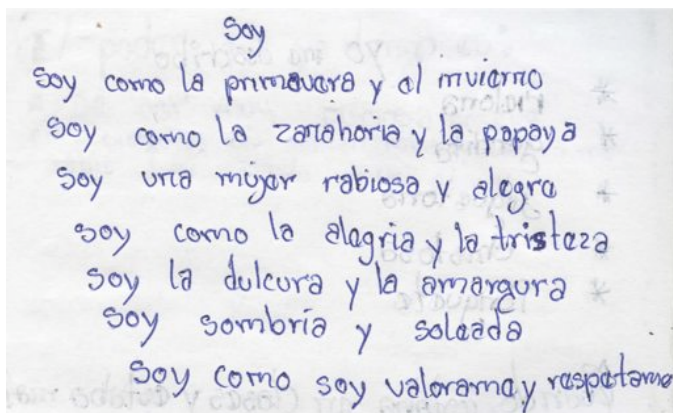 Soy
Soy como la primavera y el invierno
Soy como la zanahoria y la papaya
Soy una mujer rabiosa y alegre
Soy como la alegria y la tristeza
Soy la dulcura y la amargura
Soy sombría y soleada
Soy como soy valorame y respetame